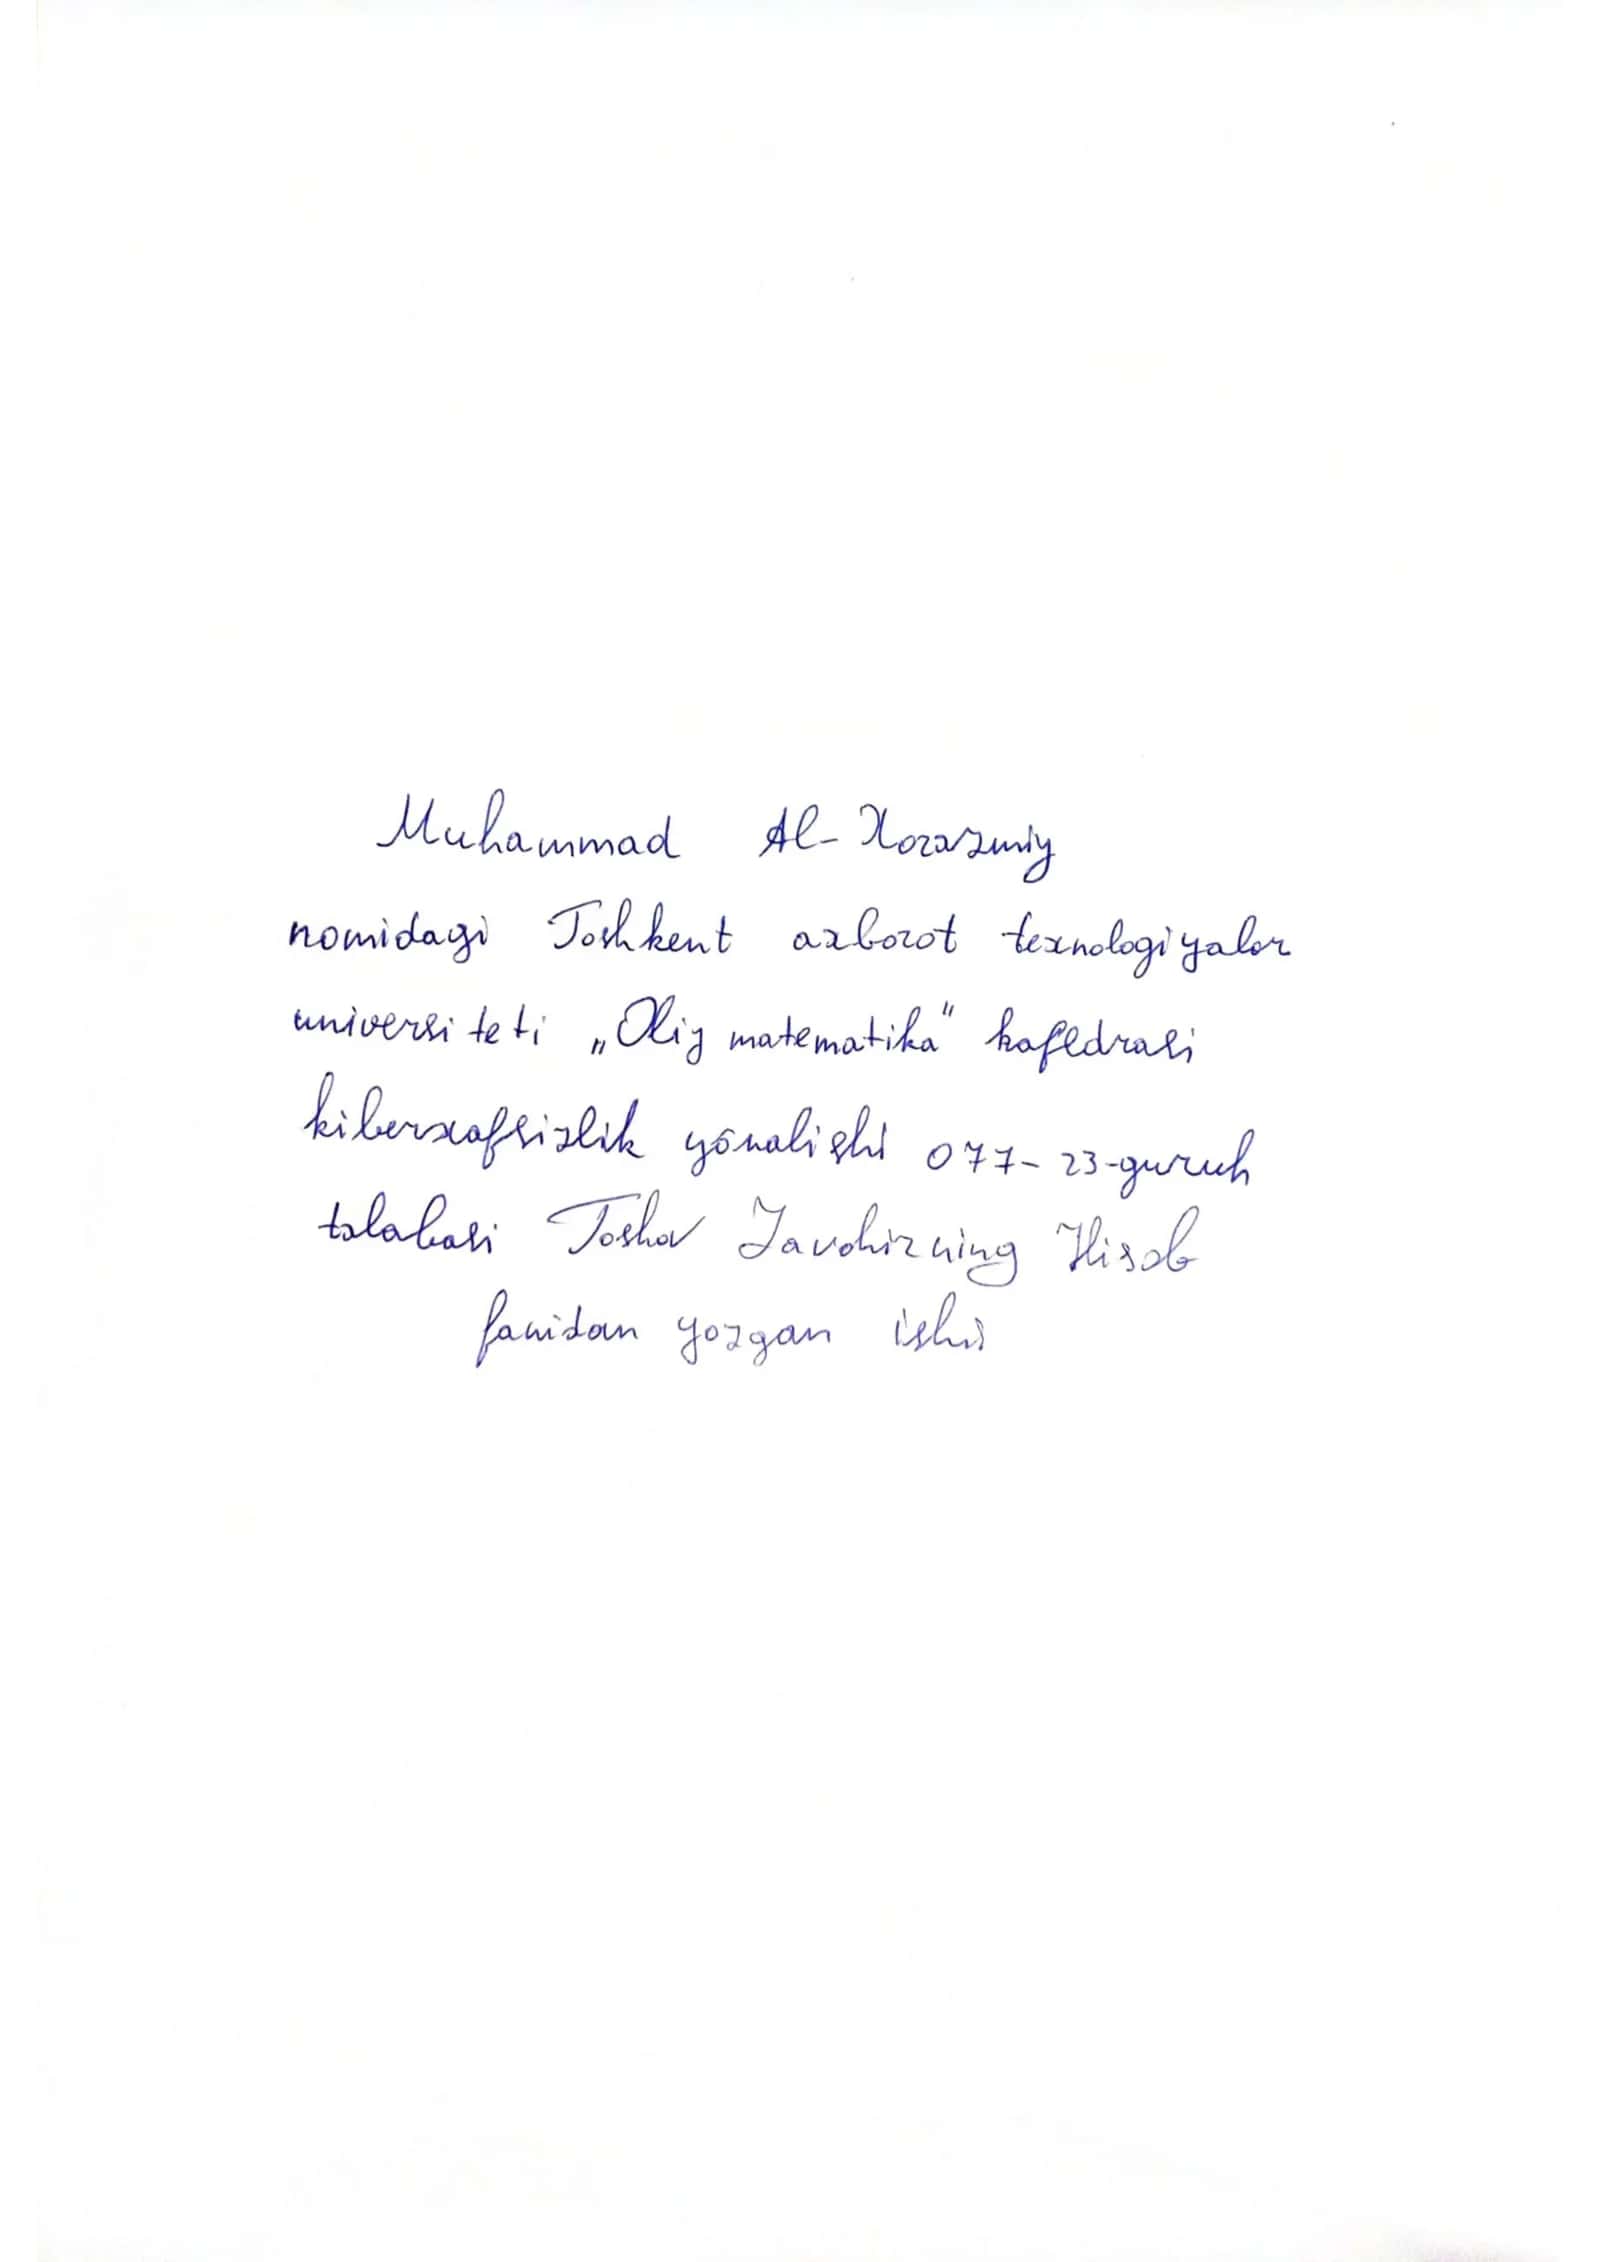 Muhammad Al-Xorazmiy
nomidagi Toshkent axborot texnologiyalar
universiteti „Oliy matematika" kafedrasi
kiberxafsizlik yōnalishi 077-23-guruh
talabasi Toshov Javohirning Hisob
fanidan yozgan ishi